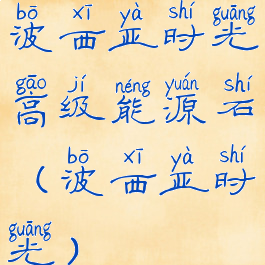 bō xī yà shí guāng
波西亚时光
gāo jí néng yuán shí
高级能源石
bō xī yà shí
（波西亚时
guāng
光）